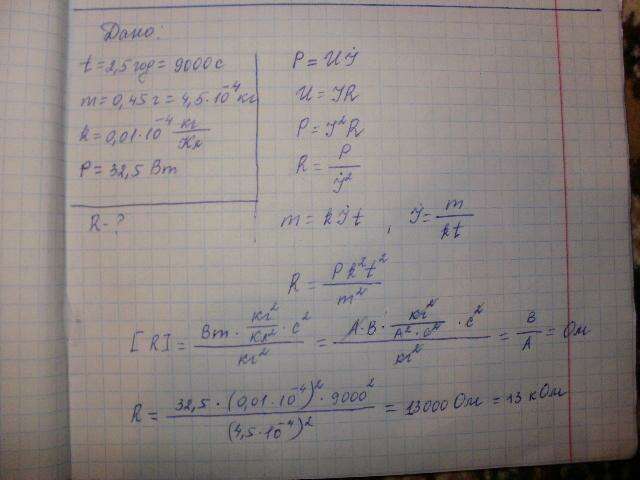 Дано:
t = 2,5 год = 9000 с
m = 0,45 г = 4,5·10⁻⁴ кг
k = 0,01·10⁻⁴ кг/Кл
P = 32,5 Вт
R - ?
P = UI
U = IR
P = I²R
R = P/I²
m = kIt , I = m/kt
R = Pk²t²/m²
[R] = (Вт · кг²/Кл² · с²)/кг² = (А·В · кг²/(А²·с²) · с²)/кг² = В/А = Ом
R = (32,5 · (0,01·10⁻⁴)² · 9000²)/(4,5·10⁻⁴)² = 13000 Ом = 13 кОм